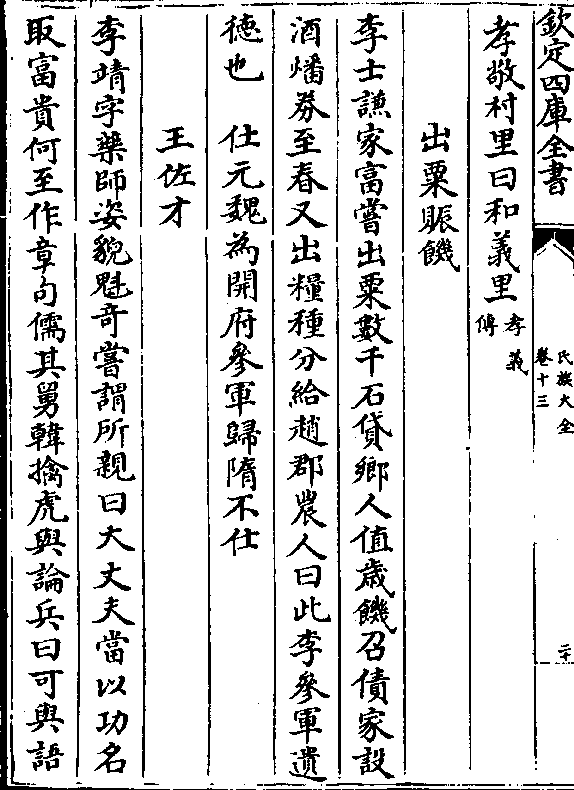 欽定四庫全書
氏族大全
卷十三
二十
孝敬村里曰和義里孝義傳
出粟賑饑
李士謙家富嘗出粟數千石貸鄉人值歲饑召債家設
酒燔券至春又出糧種分給趙郡農人曰此李參軍遺
徳也　仕元魏為開府參軍歸隋不仕
王佐才
李靖字藥師姿貌魁奇嘗謂所親曰大丈夫當以功名
取富貴何至作章句儒其舅韓擒虎與論兵曰可與語